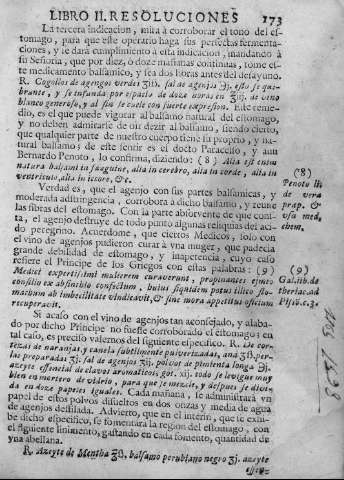 LIBRO II. RESOLUCIONES 173
La tercera indicacion, mira à corroborar el tono del es-
tomago, para que este operario haga sus perfectas fermenta-
ciones, y se darà cumplimiento à esta indicacion, mandando à
su Señoria, que por diez, ò doze mañanas continuas, tome es-
te medicamento balsamico, y sea dos horas antes del desayuno.
R. Cogollos de agengos verdes ʒiiſ. sal de agenjos ℈j. esto se que-
brante, y se infunda por espacio de doze horas en ℥iij. de vino
blanco generoso, y al fin se cuele con fuerte expresion. Este reme-
dio, es el que puede vigorar al balsamo natural del estomago,
y no deben admirarse de oir dezir al balsamo, siendo cierto,
que qualquier parte de nuestro cuerpo tiene su proprio, y na-
tural balsamo; de este sentir es el docto Paracelso, y aun
Bernardo Penoto, lo confirma, diziendo: (8) Alia est enim
natura balsami in sanguine, alia in cerebro, alia in corde, alia in
ventriculo, alia in iecore, &c.
(8)
Penoto lib.
de vera
prap. &
usu med.
chem.
Verdad es, que el agenjo con sus partes balsamicas, y
moderada adstringencia, corrobora à dicho balsamo, y reune
las fibras del estomago. Con la parte absorvente de que cons-
ta, el agenjo destruye de todo punto algunas reliquias del aci-
do peregrino. Acuerdome, que ciertos Medicos, solo con
el vino de agenjos pudieron curar à vna muger, que padecia
grande debilidad de estomago, y inapetencia, cuyo caso
refiere el Principe de los Griegos con estas palabras: (9)
Medici expertissimi mulierem curaverunt, propinantes ejus
consilio ex absinthio confectum, huius siquidem potus illico sto-
machum ab imbecilitate vindicavit, & sine mora appetitus oficium
recuperavit.
(9)
Gal. lib. de
theriac. ad
Pis. c. 3.
Si acaso con el vino de agenjos tan aconsejado, y alaba-
do por dicho Principe no fuesse corroborado el estomago; en
tal caso, es preciso valernos del siguiente especifico. R. De cor-
tezas de naranjas, y canela subtilmente pulverizadas, anà ʒſſ. per-
las preparadas ʒj. sal de agenjos ℈ij. polvos de pimienta longa ℈j.
azeyte essencial de clavos aromaticos, got. xij. todo se levigue muy
bien en mortero de vidrio, para que se mezcle, y despues se divi-
da en doze papeles iguales. Cada mañana, se administrarà vn
papel de estos polvos disueltos en dos onzas y media de agua
de agenjos destilada. Advierto, que en el interin, que le exi-
be dicho especifico, se fomentara la region del estomago, con
el siguiente linimento, gastando en cada fomento, quantidad de
vna abellana.
R. Azeyte de Mentha ʒſſ, balsamo perubiano negro ʒj. azeyte
essen-